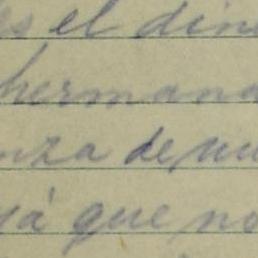 es el din
hermana
nza de nu
yá que no